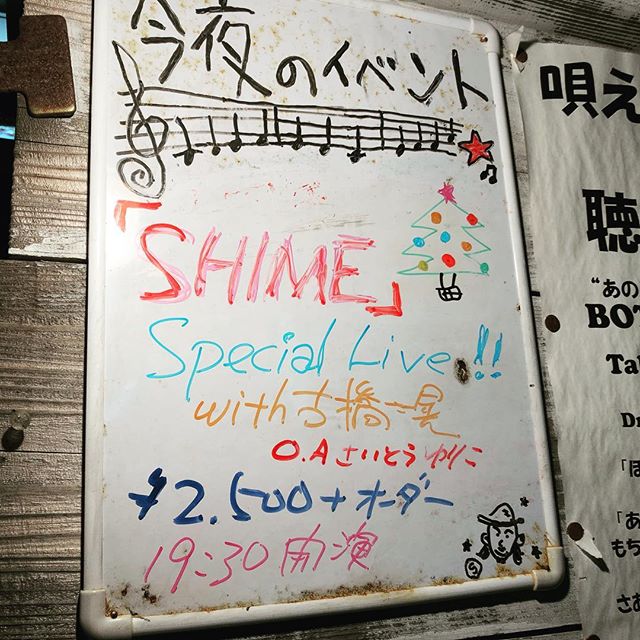 今夜のイベント
「SHIME」
Special Live!!
with 古橋一晃
O.A さいとうゆりこ
¥2.500+オーダー
19:30 開演
唄え
聴
"あの
BOT
Ta
Dr
「ほ
「あ
もち
さあ